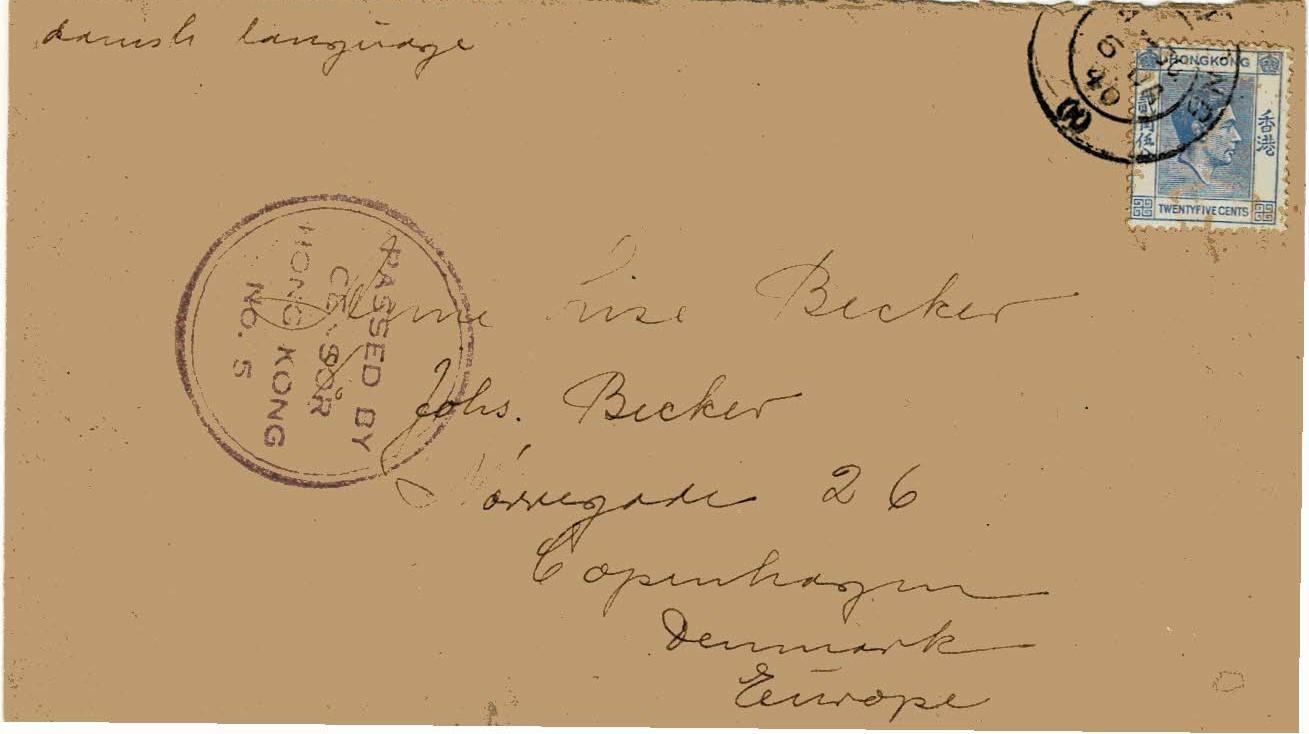 danish language
HONG KONG
香港
貳角伍分
TWENTYFIVE CENTS
PASSED BY
CENSOR
HONG KONG
NO. 5
Lise Becker
Johs. Becker
Nörregade 26
Copenhagen
Denmark
Europe